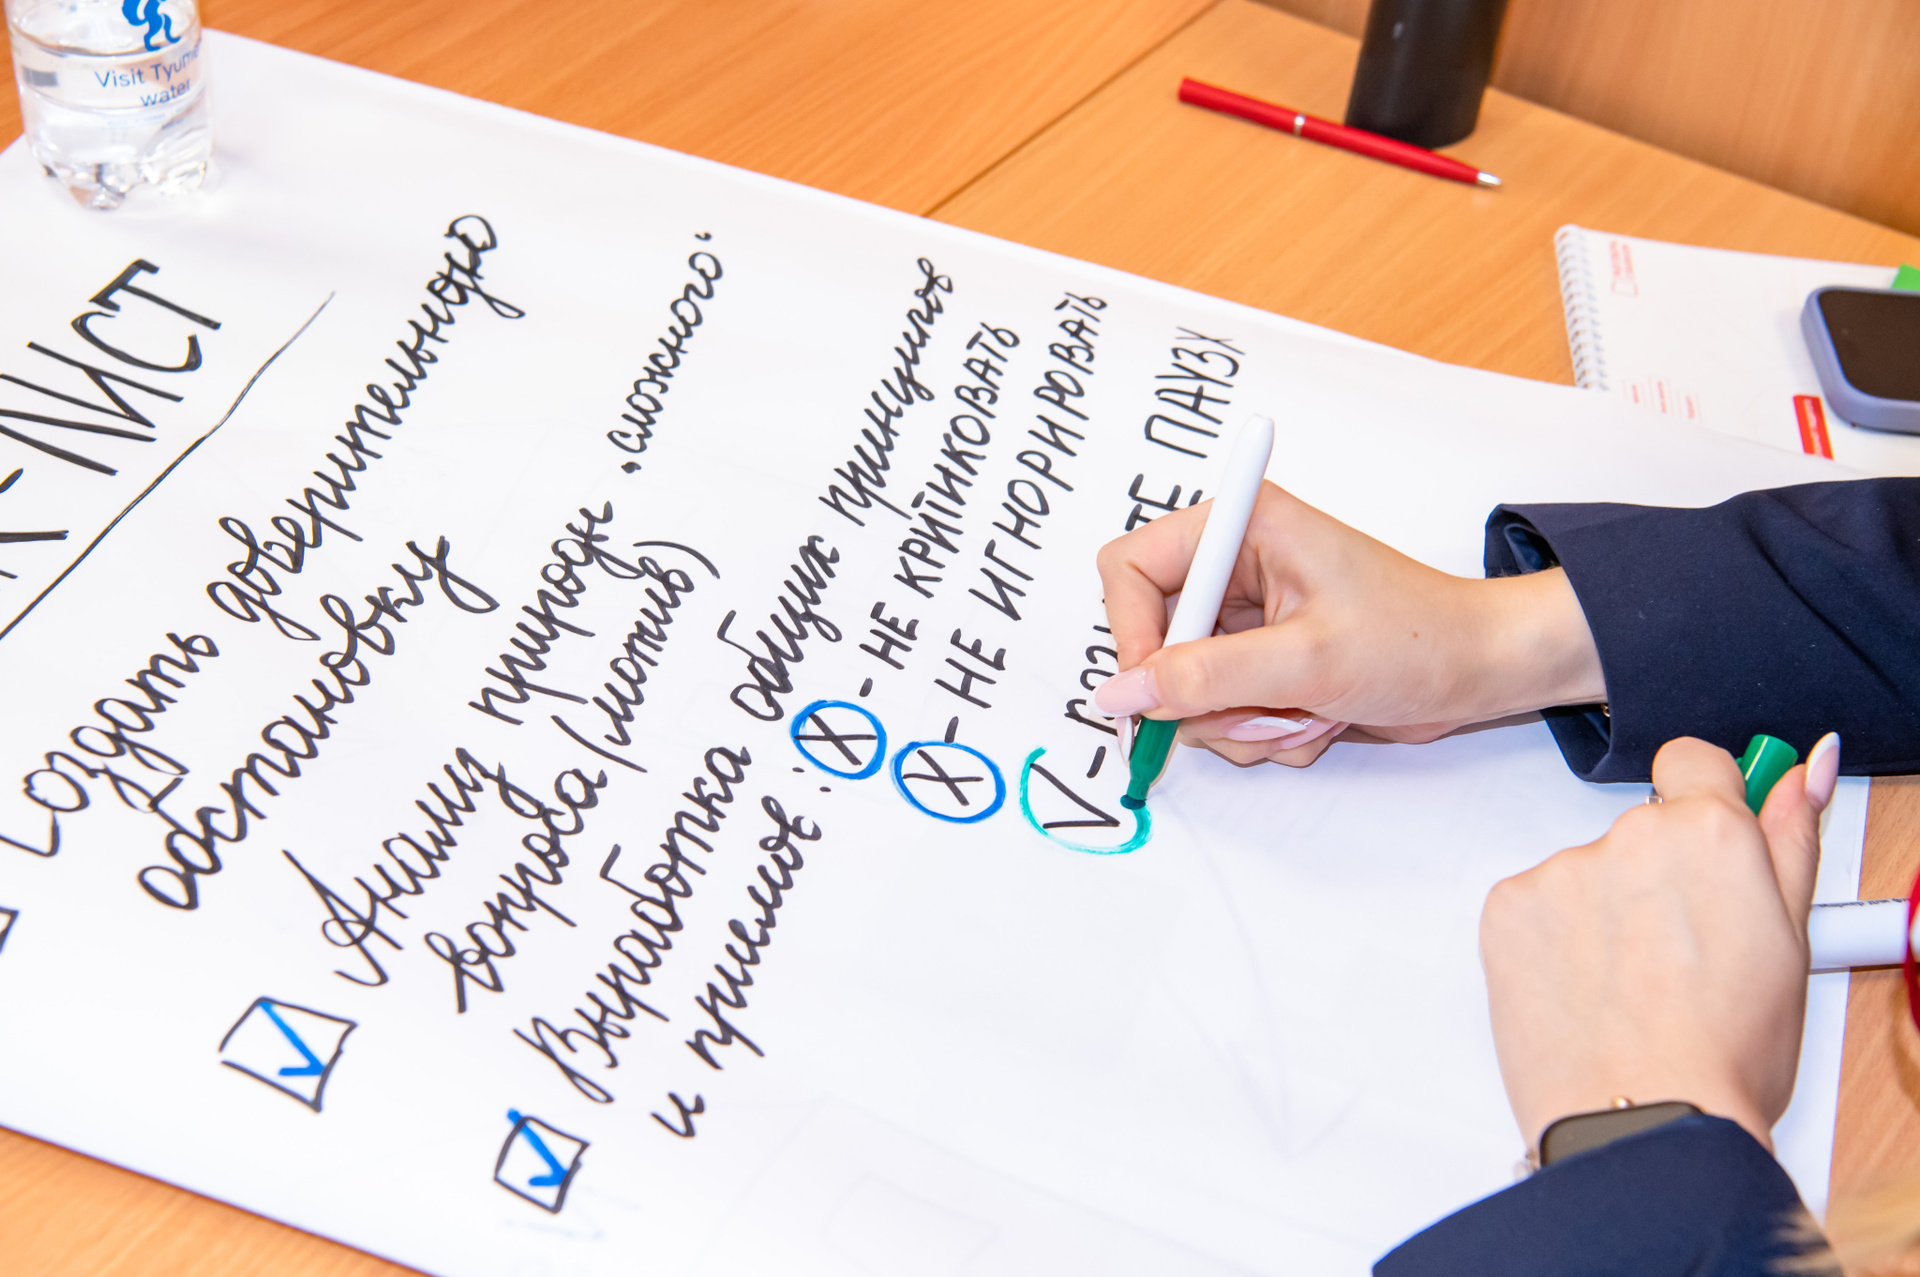 Visit Tyum
water
-ЛИСТ
Создать доверительную
обстановку
Анализ природы "сложного"
вопроса (мотив)
Выработка общих принципов
и приемов:
X - НЕ КРИТИКОВАТЬ
X - НЕ ИГНОРИРОВАТЬ
V - ТЕ ПАУЗУ